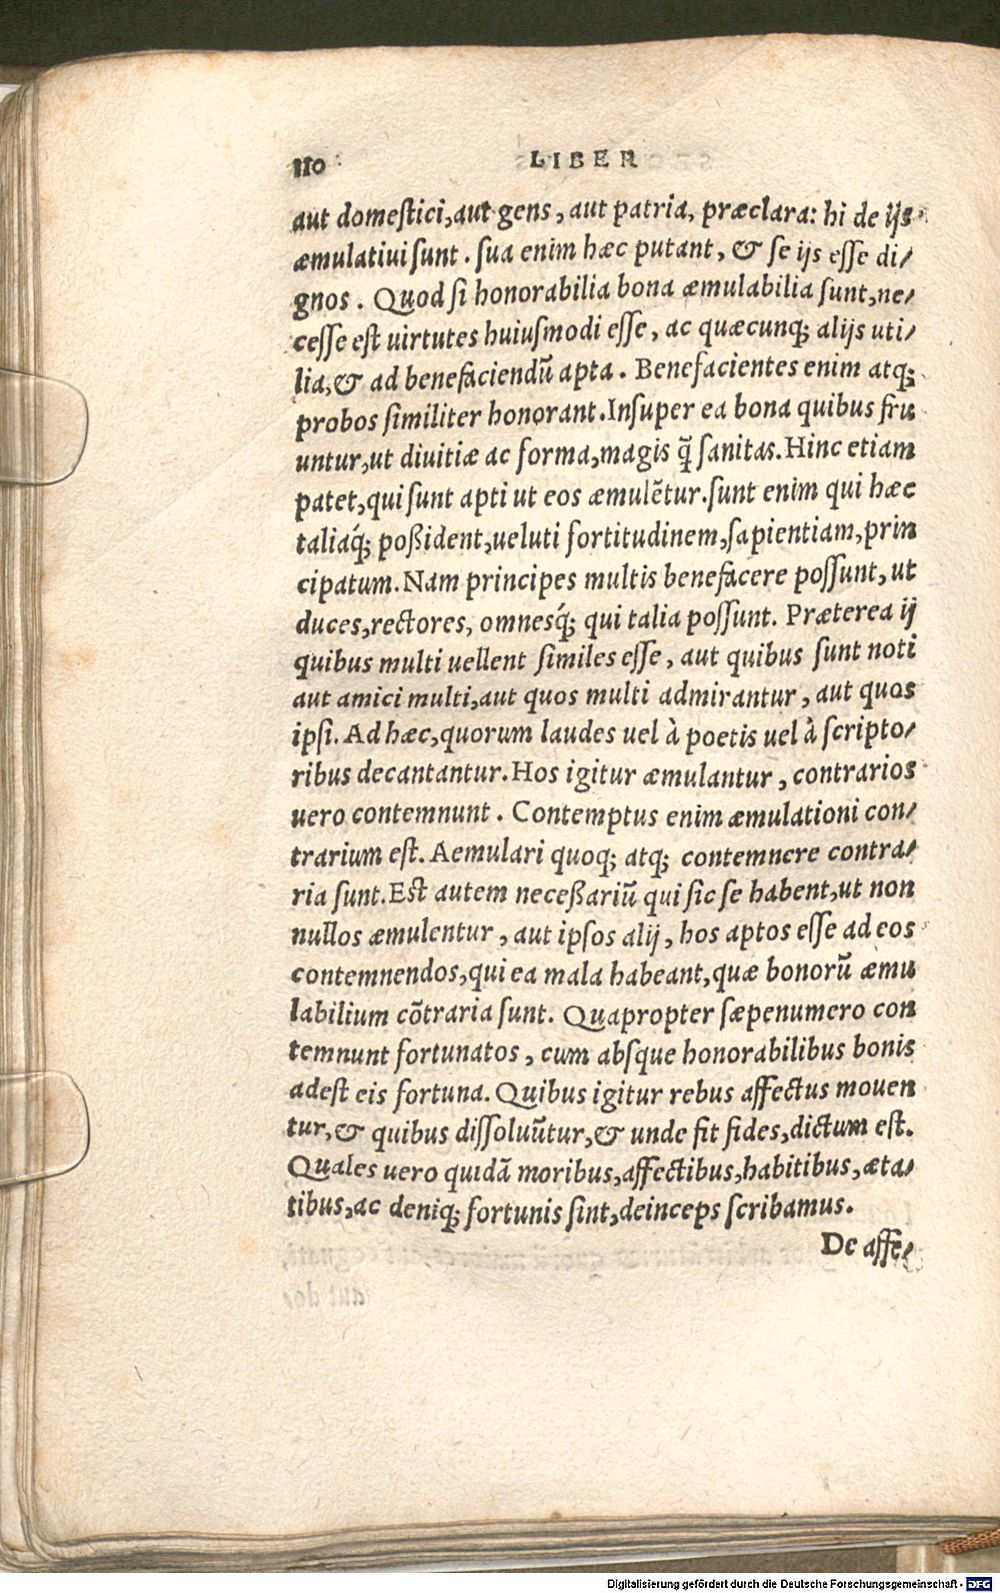 110 LIBER
aut domestici, aut gens, aut patria, præclara: hi de ijs
æmulatiui sunt. sua enim hæc putant, & se ijs esse di/
gnos. Quod si honorabilia bona æmulabilia sunt, ne/
cesse est uirtutes huiusmodi esse, ac quæcunq; alijs uti/
lia, & ad benefaciendũ apta. Benefacientes enim atq;
probos similiter honorant. Insuper ea bona quibus fru
untur, ut diuitiæ ac forma, magis q̃ sanitas. Hinc etiam
patet, qui sunt apti ut eos æmulẽtur. sunt enim qui hæc
taliaq́; poßident, ueluti fortitudinem, sapientiam, prin
cipatum. Nam principes multis benefacere possunt, ut
duces, rectores, omnesq́; qui talia possunt. Præterea ij
quibus multi uellent similes esse, aut quibus sunt noti
aut amici multi, aut quos multi admirantur, aut quos
ipsi. Ad hæc, quorum laudes uel à poetis uel à scripto/
ribus decantantur. Hos igitur æmulantur, contrarios
uero contemnunt. Contemptus enim æmulationi con/
trarium est. Aemulari quoq; atq; contemnere contra/
ria sunt. Est autem neceßariũ qui sic se habent, ut non
nullos æmulentur, aut ipsos alij, hos aptos esse ad eos
contemnendos, qui ea mala habeant, quæ bonorũ æmu
labilium cõtraria sunt. Quapropter sæpenumero con
temnunt fortunatos, cum absque honorabilibus bonis
adest eis fortuna. Quibus igitur rebus affectus mouen
tur, & quibus dissoluũtur, & unde fit fides, dictum est.
Quales uero quidã moribus, affectibus, habitibus, æta/
tibus, ac deniq; fortunis sint, deinceps scribamus.
De affe/
Digitalisierung gefördert durch die Deutsche Forschungsgemeinschaft - DFG